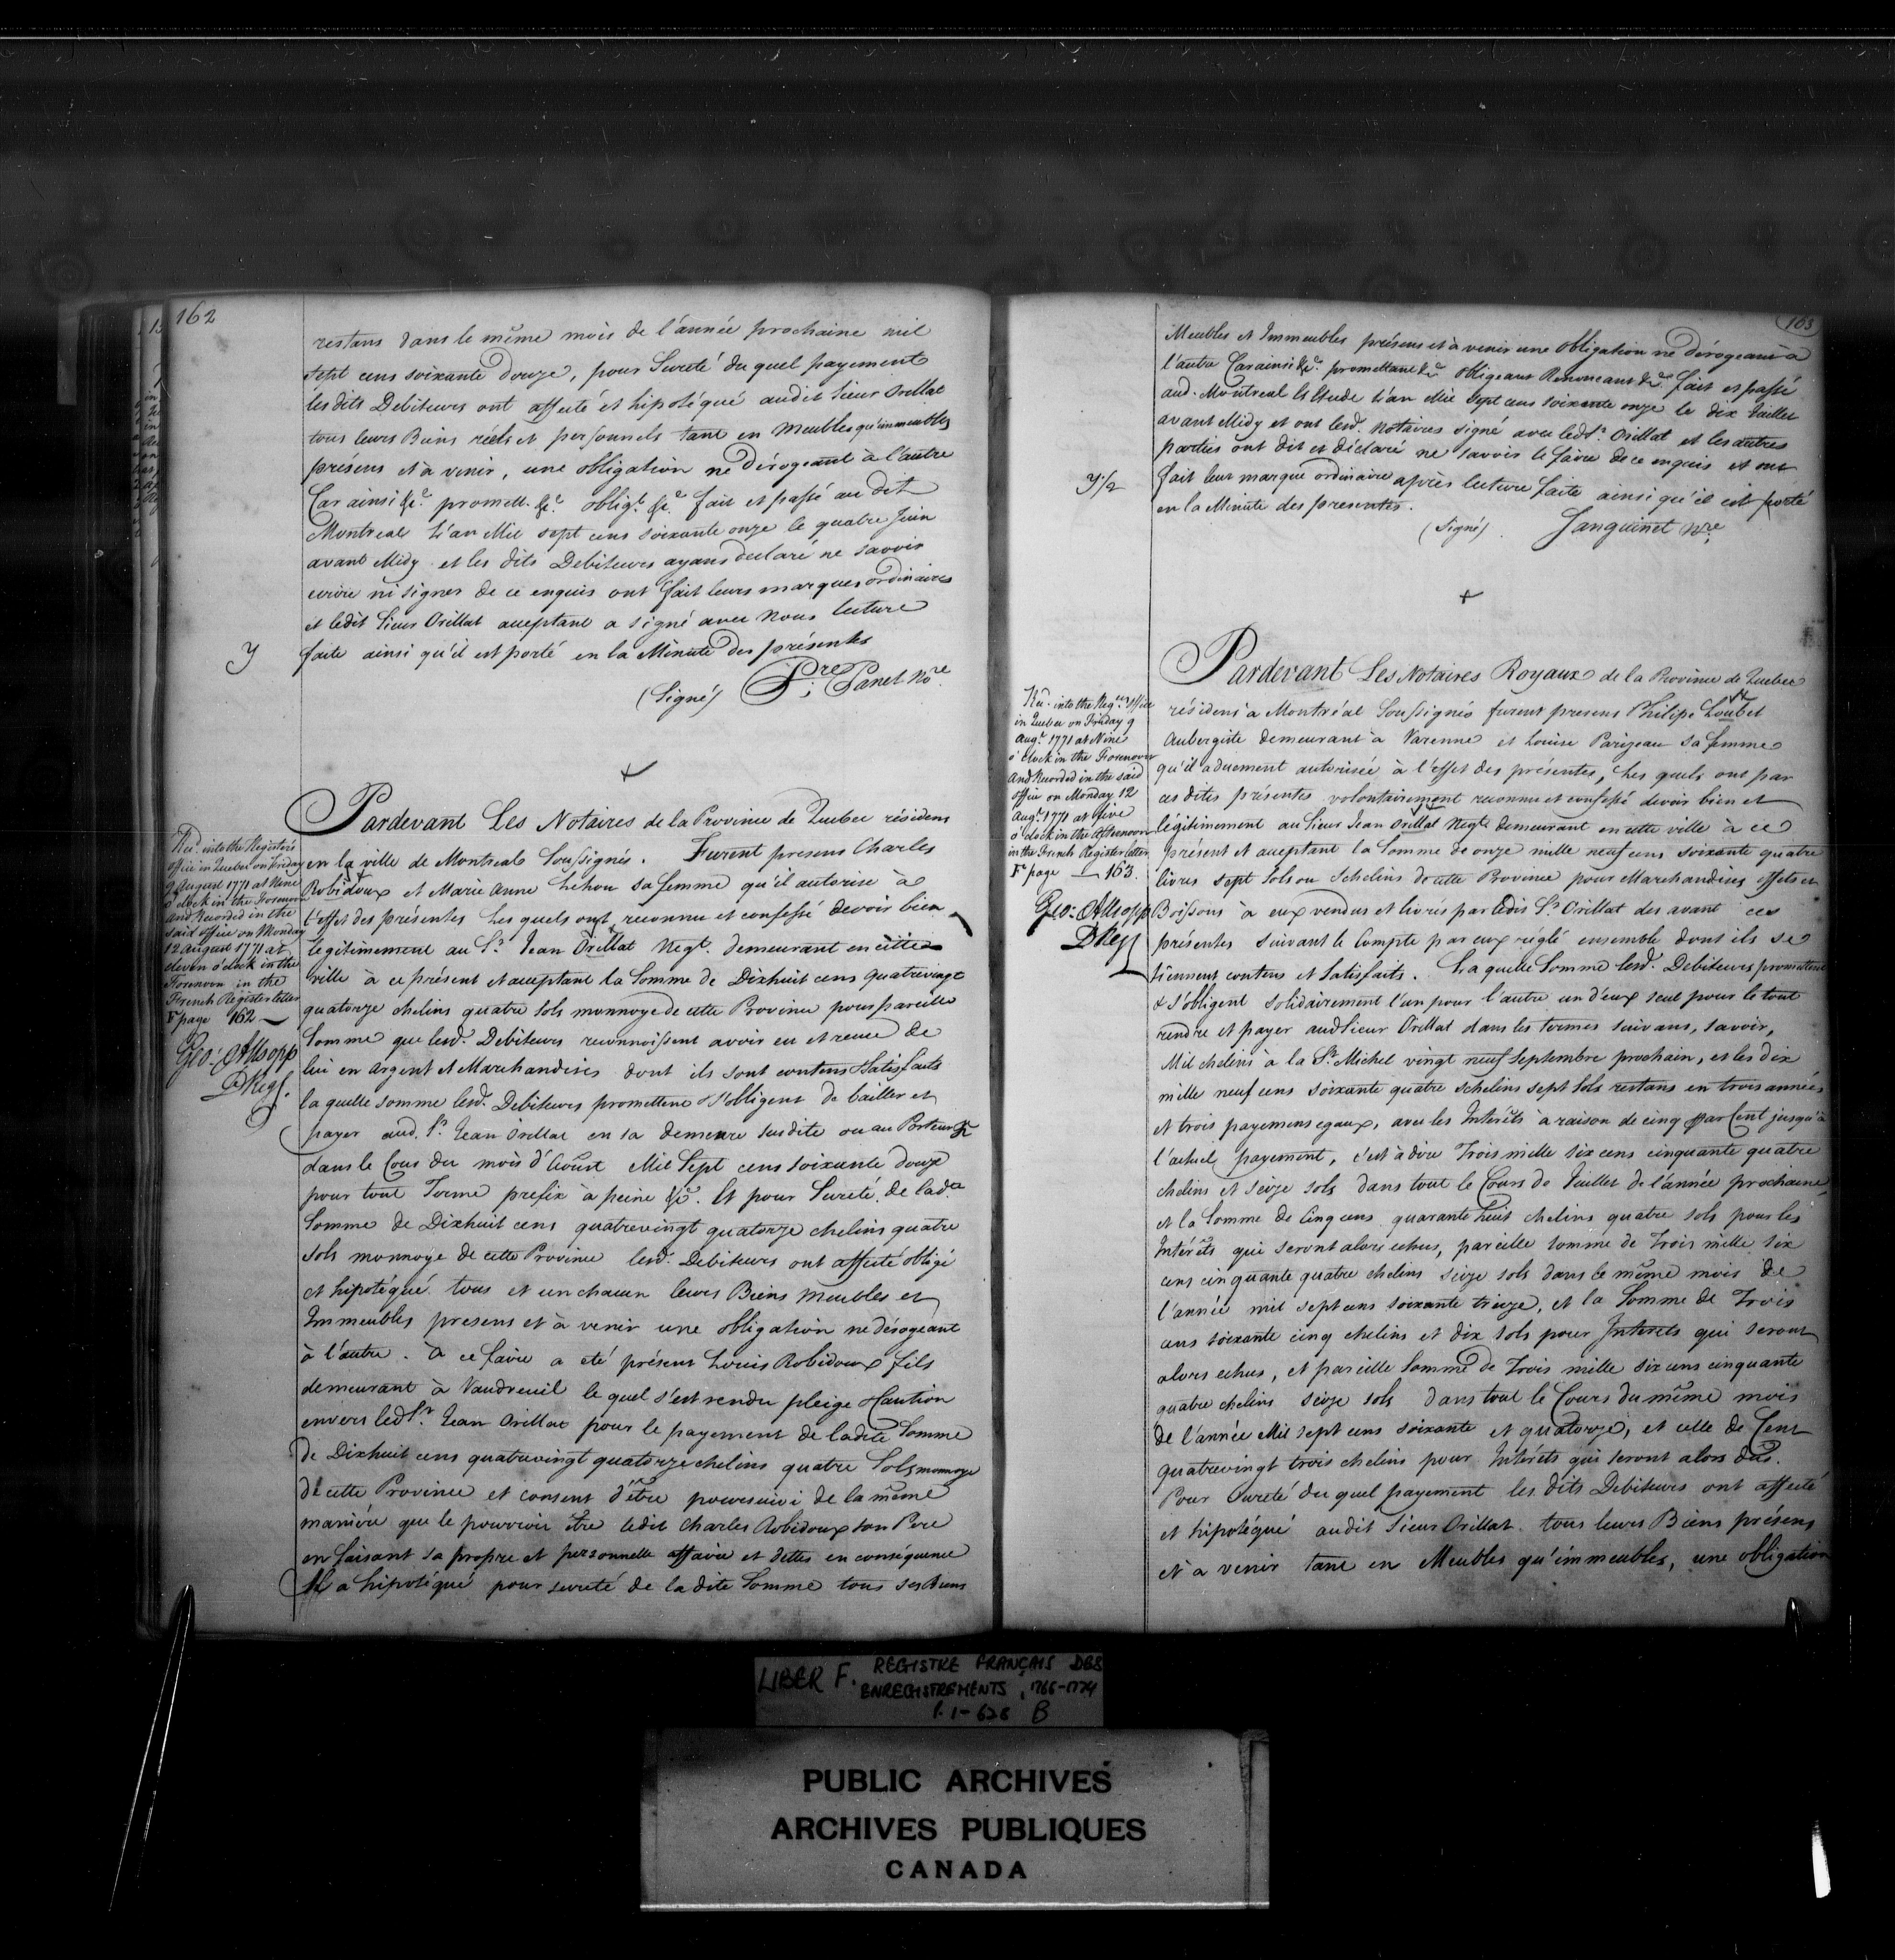 162
restans dans le même mois de l'année prochaine mil
sept cens soixante douze, pour Sureté du quel payement
les dits Debiteurs ont affecté et hipotéqué audit Sieur Orillat
tous leurs Biens réels et personnels tant en Meubles qu'immeubles
présens et à venir, une obligation ne dérogeant à l'autre
Car ainsi &c. promett. &c. oblig.t &c. fait et passé au dit
Montreal L'an Mil sept cens soixante onze le quatre Juin
avant Midy et les dits Debiteurs ayans declaré ne savoir
ecrire ni signer de ce enquis ont fait leurs marques ordinaires
et ledit Sieur Orillat acceptant a signé avec Nous lecture
faite ainsi qu'il est porté en la Minute des présentes
(Signé) P.re Panet No.re
Rec.d into the Registers
office in Quebec on Friday
9 August 1771 at Nine
o'clock in the Forenoon
and Recorded in the
said office on Monday
12 August 1771 at
eleven o'clock in the
Forenoon in the
French Register letter
F page 162
Geo: Allsopp
D Reg.
Pardevant Les Notaires de la Province de Quebec résidens
en la ville de Montreal Soussignés. Furent presens Charles
Robidoux et Marie Anne Lehou sa femme qu'il autorise à
l'effet des présentes Les quels ont reconnu et confessé devoir bien
legitimement au S.r Jean Orillat Neg.t demeurant en cette
ville à ce présent et acceptant la Somme de Dixhuit cens quatrevingt
quatorze chelins quatre sols monnoye de cette Province pour pareille
Somme que lesd. Debiteurs reconnoissent avoir eu et recue de
lui en Argent et Marchandises dont ils sont contens & Satisfaits
la quelle somme lesd. Debiteurs promettent & s'obligent de bailler et
payer aud. S.r Jean Orillat en sa demeure susdite ou au Porteur &c
dans le Cours du mois d'Aoust Mil Sept cens soixante douze
pour tout Terme prefix à peine &c. Et pour Sureté de lad.te
Somme de Dixhuit cens quatrevingt quatorze chelins quatre
sols monnoye de cette Province lesd. Debiteurs ont affecté obligé
et hipotéqué tous et un chacun leurs Biens meubles et
Immeubles presens et à venir une obligation ne dérogeant
à l'autre. à ce faire a eté présent Louis Robidoux fils
demeurant à Vaudreuil le quel s'est rendu pleige & Caution
envers led S.r Jean Orillat pour le payement de ladite Somme
de Dixhuit cens quatrevingt quatorze chelins quatre Sols monnoye
de cette Province et consent d'être poursuivi de la même
maniere que le pourroit être ledit Charles Robidoux son Pere
en faisant sa propre et personnelle affaire et dettes en conséquence
Il a hipotéqué pour sureté de la dite Somme tous ses Biens
163
Meubles et Immeubles présens et à venir une obligation ne dérogeant à
l'autre Car ainsi &c. promettant &c obligeant Renoncant &c. fait et passé
aud. Montreal Es Etude L'an Mil Sept cens soixante onze le dix Juillet
avant Midy et ont lesd. Notaires signé avec led S.r Orillat et les autres
parties ont dit et déclaré ne savoir le faire de ce enquis et ont
fait leur marque ordinaire après lecture faite ainsi qu'il est porté
en la Minute des presentes.
(Signé) Sanguinet N.re
Rec.d into the Reg.rs Office
in Quebec on Friday 9
Aug.t 1771 at Nine
o'clock in the Forenoon
and Recorded in the said
office on Monday 12
Aug.t 1771 at five
o'clock in the Afternoon
in the French Register letter
F page 163.
Geo: Allsopp
D Reg
Pardevant Les Notaires Royaux de la Province de Quebec
résidens à Montréal Soussignés furent presens Philipe Loubet
Aubergiste demeurant à Varenne et Louise Parizeau sa femme
qu'il a duement autorisée à l'effet des présentes, Les quels ont par
ces dites présentes volontairement reconnu et confessé devoir bien et
légitimement au Sieur Jean Orillat Neg.t demeurant en cette ville à ce
présent et acceptant la Somme de onze mille neuf cens soixante quatre
livres sept sols ou Schelins de cette Province pour Marchandises effets et
Boissons à eux vendus et livrés par ledit S.r Orillat des avant ces
présentes suivant le Compte par eux réglé ensemble dont ils se
tiennent contens et Satisfaits. La quelle Somme lesd. Debiteurs promettent
& s'obligent solidairement l'un pour l'autre un d'eux seul pour le tout
rendre et payer aud Sieur Orillat dans les termes suivans, savoir,
Mil chelins à la St. Michel vingt neuf Septembre prochain, et les dix
mille neuf cens soixante quatre schelins sept Sols restans en trois années
et trois payemens egaux, avec les Intérêts à raison de cinq par Cent jusqu'à
l'actuel payement, c'est à dire Trois mille six cens cinquante quatre
chelins et seize sols dans tout le Cours de Juillet de l'année prochaine,
et la Somme de Cinq cens quarante huit chelins quatre sols pour les
Intérêts qui seront alors echus, pareille somme de Trois mille six
cens cinquante quatre chelins seize sols dans le même mois de
l'année mil sept cens soixante treize, et la Somme de Trois
cens soixante cinq chelins et dix sols pour Interets qui seront
alors echus, et pareille Somme de Trois mille six cens cinquante
quatre chelins seize sols dans tout le Cours du même mois
de l'année Mil sept cens soixante et quatorze, et celle de Cent
quatrevingt trois chelins pour Intérêts qui seront alors dûs.
Pour sureté du quel payement les dits Debiteurs ont affecté
et hipotéqué audit Sieur Orillat tous leurs Biens présens
et à venir tant en Meubles qu'immeubles, une obligation
LIBER F. REGISTRE FRANÇAIS DES
ENREGISTREMENTS, 1766-1774
P. 1-626 B
PUBLIC ARCHIVES
ARCHIVES PUBLIQUES
CANADA